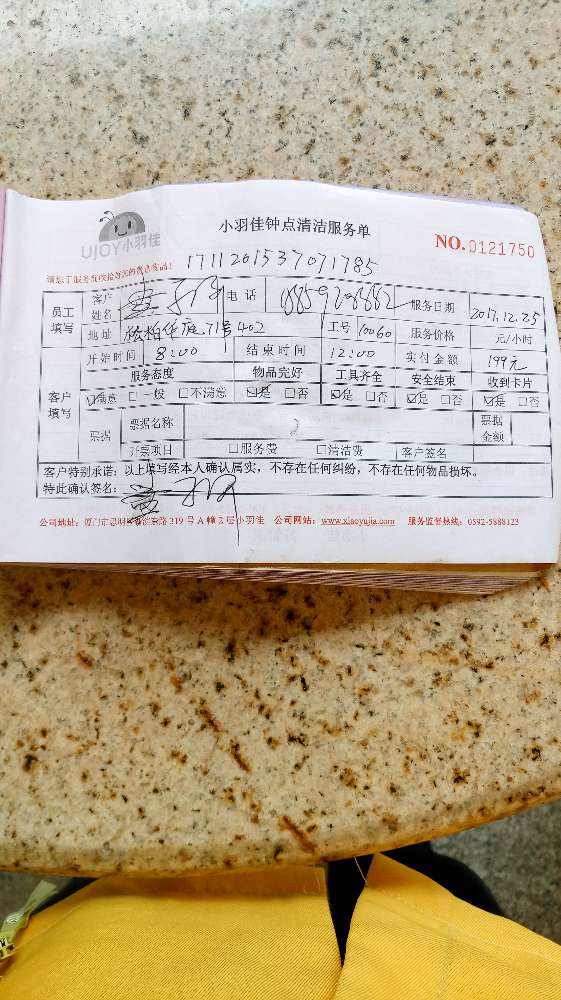 UJOY小羽佳
小羽佳钟点清洁服务单
NO.0121750
1711201537071785
员工填写 客户姓名 电话 服务日期 2017.12.25
地址 松柏华庭71号402 工号 10060 服务价格 元/小时
开始时间 8:00 结束时间 12:00 实付金额 199元
客户填写 服务态度 物品完好 工具齐全 安全结束 收到卡片
☑满意 □一般 □不满意 ☑是 □否 ☑是 □否 ☑是 □否 ☑是 □否
票据 票据名称 票据金额
开票项目 □服务费 □清洁费 客户签名
客户特别承诺：以上填写经本人确认属实，不存在任何纠纷，不存在任何物品损坏。
特此确认签名：
公司地址：厦门市思明区 东路319号A幢2层小羽佳 公司网站：www.xiaoyujia.com 服务监督热线：0592-5888123